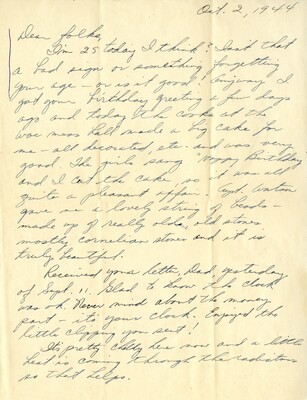 Oct. 2, 1944
Dear folks,
I'm 25 today I think? Isn't that
a bad sign or something forgetting
your age - or is it good? Anyway I
got your birthday greeting a few days
ago and today the cooks at the
wac mess hall made a big cake for
me - all decorated, etc. and was very
good. The girls sang "Happy Birthday"
and I cut the cake so it was all
quite a pleasant affair. Capt. Watson
gave me a lovely string of beads -
made up of really olde, old stones
mostly cornelian stones and it is
truly beautiful.
Received your letter, Dad, yesterday
of Sept. 11. Glad to know the clock
was ok. Never mind about the money
part - it's your clock. Enjoyed the
little clipping you sent!
It's pretty chilly here now and a little
heat is coming through the radiators
so that helps.